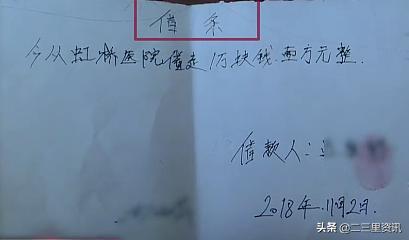 借条
今从虹桥医院借走1万块钱.壹万元整.
借款人:
2018年.11月2日.
头条 @二三里资讯